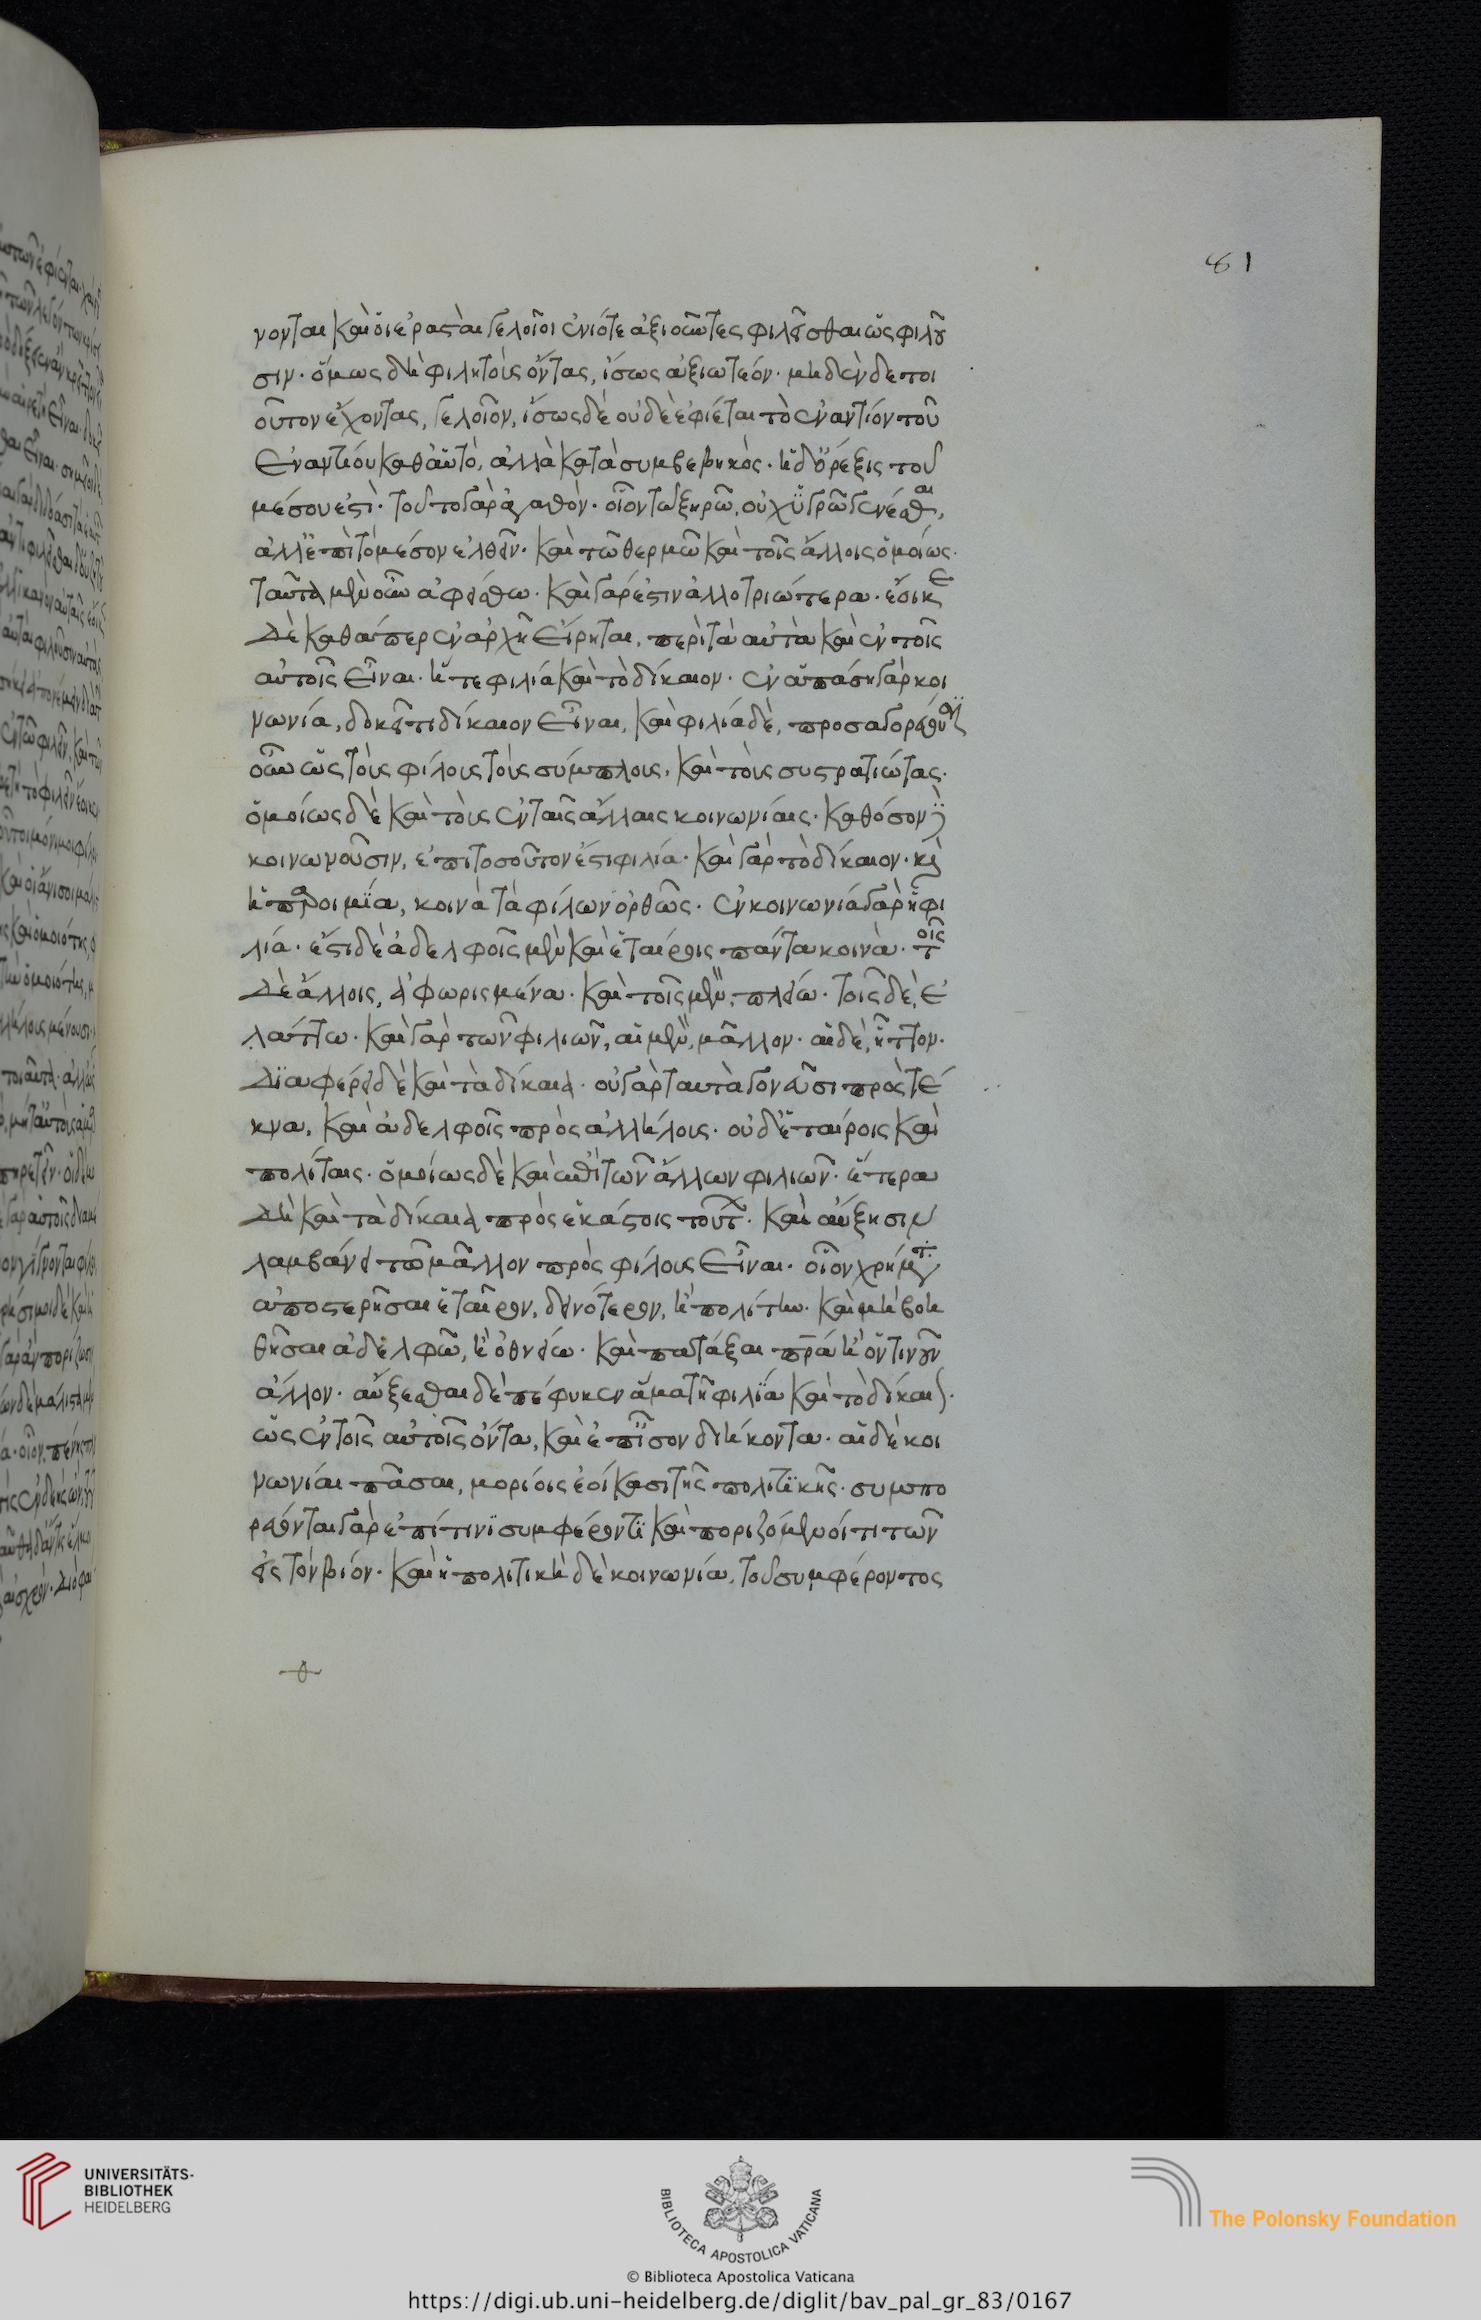 81
νονται καὶ οἱ ἐρασταὶ γελοῖοι ἐνίοτε ἀξιοῦντες φιλεῖσθαι ὡς φιλοῦ
σιν· ὅμως δὴ φιλητοὺς ὄντας, ἴσως ἀξιωτέον· μηδὲν δὲ τοι
οῦτον ἔχοντας, γελοῖον, ἴσως δὲ οὐδὲ ἐφίεται τὸ ἐναντίον τοῦ
ἐναντίου καθ' αὑτό, ἀλλὰ κατὰ συμβεβηκός· ἡ δ' ὄρεξις τοῦ
μέσου ἐστί· τοῦτο γὰρ ἀγαθόν· οἷον τῷ ξηρῷ, οὐχ ὑγρῷ γενέσθαι,
ἀλλ' ἐπὶ τὸ μέσον ἐλθεῖν· καὶ τῷ θερμῷ καὶ τοῖς ἄλλοις ὁμοίως·
ταῦτα μὲν οὖν ἀφείσθω· καὶ γάρ ἐστιν ἀλλοτριώτερα· ἔοικε
δὲ καθάπερ ἐν ἀρχῇ εἴρηται, περὶ τὰ αὐτὰ καὶ ἐν τοῖς
αὐτοῖς εἶναι· ἥ τε φιλία καὶ τὸ δίκαιον· ἐν ἁπάσῃ γὰρ κοι
νωνία, δοκεῖ τι δίκαιον εἶναι, καὶ φιλία δέ, προσαγορεύουσι
οὖν ὡς τοὺς φίλους τοὺς σύμπλους, καὶ τοὺς συστρατιώτας·
ὁμοίως δὲ καὶ τοὺς ἐν ταῖς ἄλλαις κοινωνίαις· καθόσον δὲ
κοινωνοῦσιν, ἐπὶ τοσοῦτον ἐστι φιλία· καὶ γὰρ τὸ δίκαιον· καὶ
ἡ παροιμία, κοινὰ τὰ φίλων ὀρθῶς· ἐν κοινωνία γὰρ ἡ φι
λία· ἔστι δὲ ἀδελφοῖς μὲν καὶ ἑταίροις πάντα κοινά· τοῖς
δὲ ἄλλοις, ἀφωρισμένα· καὶ τοῖς μὲν, πλείω· τοῖς δὲ, ἐ
λάττω· καὶ γὰρ τῶν φιλιῶν, αἱ μὲν, μᾶλλον· αἱ δὲ, ἧττον·
διαφέρει δὲ καὶ τὰ δίκαια· οὐ γὰρ ταυτὰ γονεῦσι πρὸς τέ
κνα, καὶ ἀδελφοῖς πρὸς ἀλλήλοις· οὐδ' ἑταίροις καὶ
πολίταις· ὁμοίως δὲ καὶ ἐπὶ τῶν ἄλλων φιλιῶν· ἕτερα
δὴ καὶ τὰ δίκαια πρὸς ἑκάστοις τούτων· καὶ αὔξησιν
λαμβάνει τῷ μᾶλλον πρὸς φίλους εἶναι· οἷον χρήματα
ἀποστερῆσαι ἑταῖρον, δεινότερον, ἢ πολίτην· καὶ μὴ βοη
θῆσαι ἀδελφῷ, ἢ ὀθνείω· καὶ πατάξαι πρα ἢ ὁντινοῦν
ἄλλον· αὔξεσθαι δὲ πέφυκεν ἅμα τῇ φιλία καὶ τὸ δίκαιον·
ὡς ἐν τοῖς αὐτοῖς ὄντα, καὶ ἐπ' ἴσον διήκοντα· αἱ δὲ κοι
νωνίαι πᾶσαι, μορίοις ἐοίκασι τῆς πολιτικῆς· συμπο
ρεύονται γὰρ ἐπί τινι συμφέροντι καὶ ποριζόμενοί τι τῶν
εἰς τὸν βίον· καὶ ἡ πολιτικὴ δὲ κοινωνία, τοῦ συμφέροντος
UNIVERSITÄTS-
BIBLIOTHEK
HEIDELBERG
BIBLIOTECA APOSTOLICA VATICANA
© Biblioteca Apostolica Vaticana
The Polonsky Foundation
https://digi.ub.uni-heidelberg.de/diglit/bav_pal_gr_83/0167